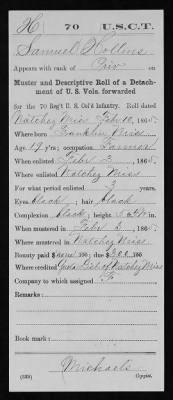 H 70 U.S.C.T.
Samuel Hollins
Appears with rank of Priv on
Muster and Descriptive Roll of a Detach-
ment of U. S. Vols. forwarded
for the 70 Reg't U. S. Col'd Infantry. Roll dated
Natchez Miss Feby 10, 1865.
Where born Franklin Miss
Age 19 y'rs; occupation Farmer
When enlisted Feb 2, 1865.
Where enlisted Natchez Miss
For what period enlisted 3 years.
Eyes black; hair black
Complexion black; height ft. in.
When mustered in Feb 2, 1865.
Where mustered in Natchez Miss
Bounty paid $ 100; due $ 100
Where credited Natchez Miss
Company to which assigned F
Remarks:
Book mark:
Michaels
(339) Copyist.